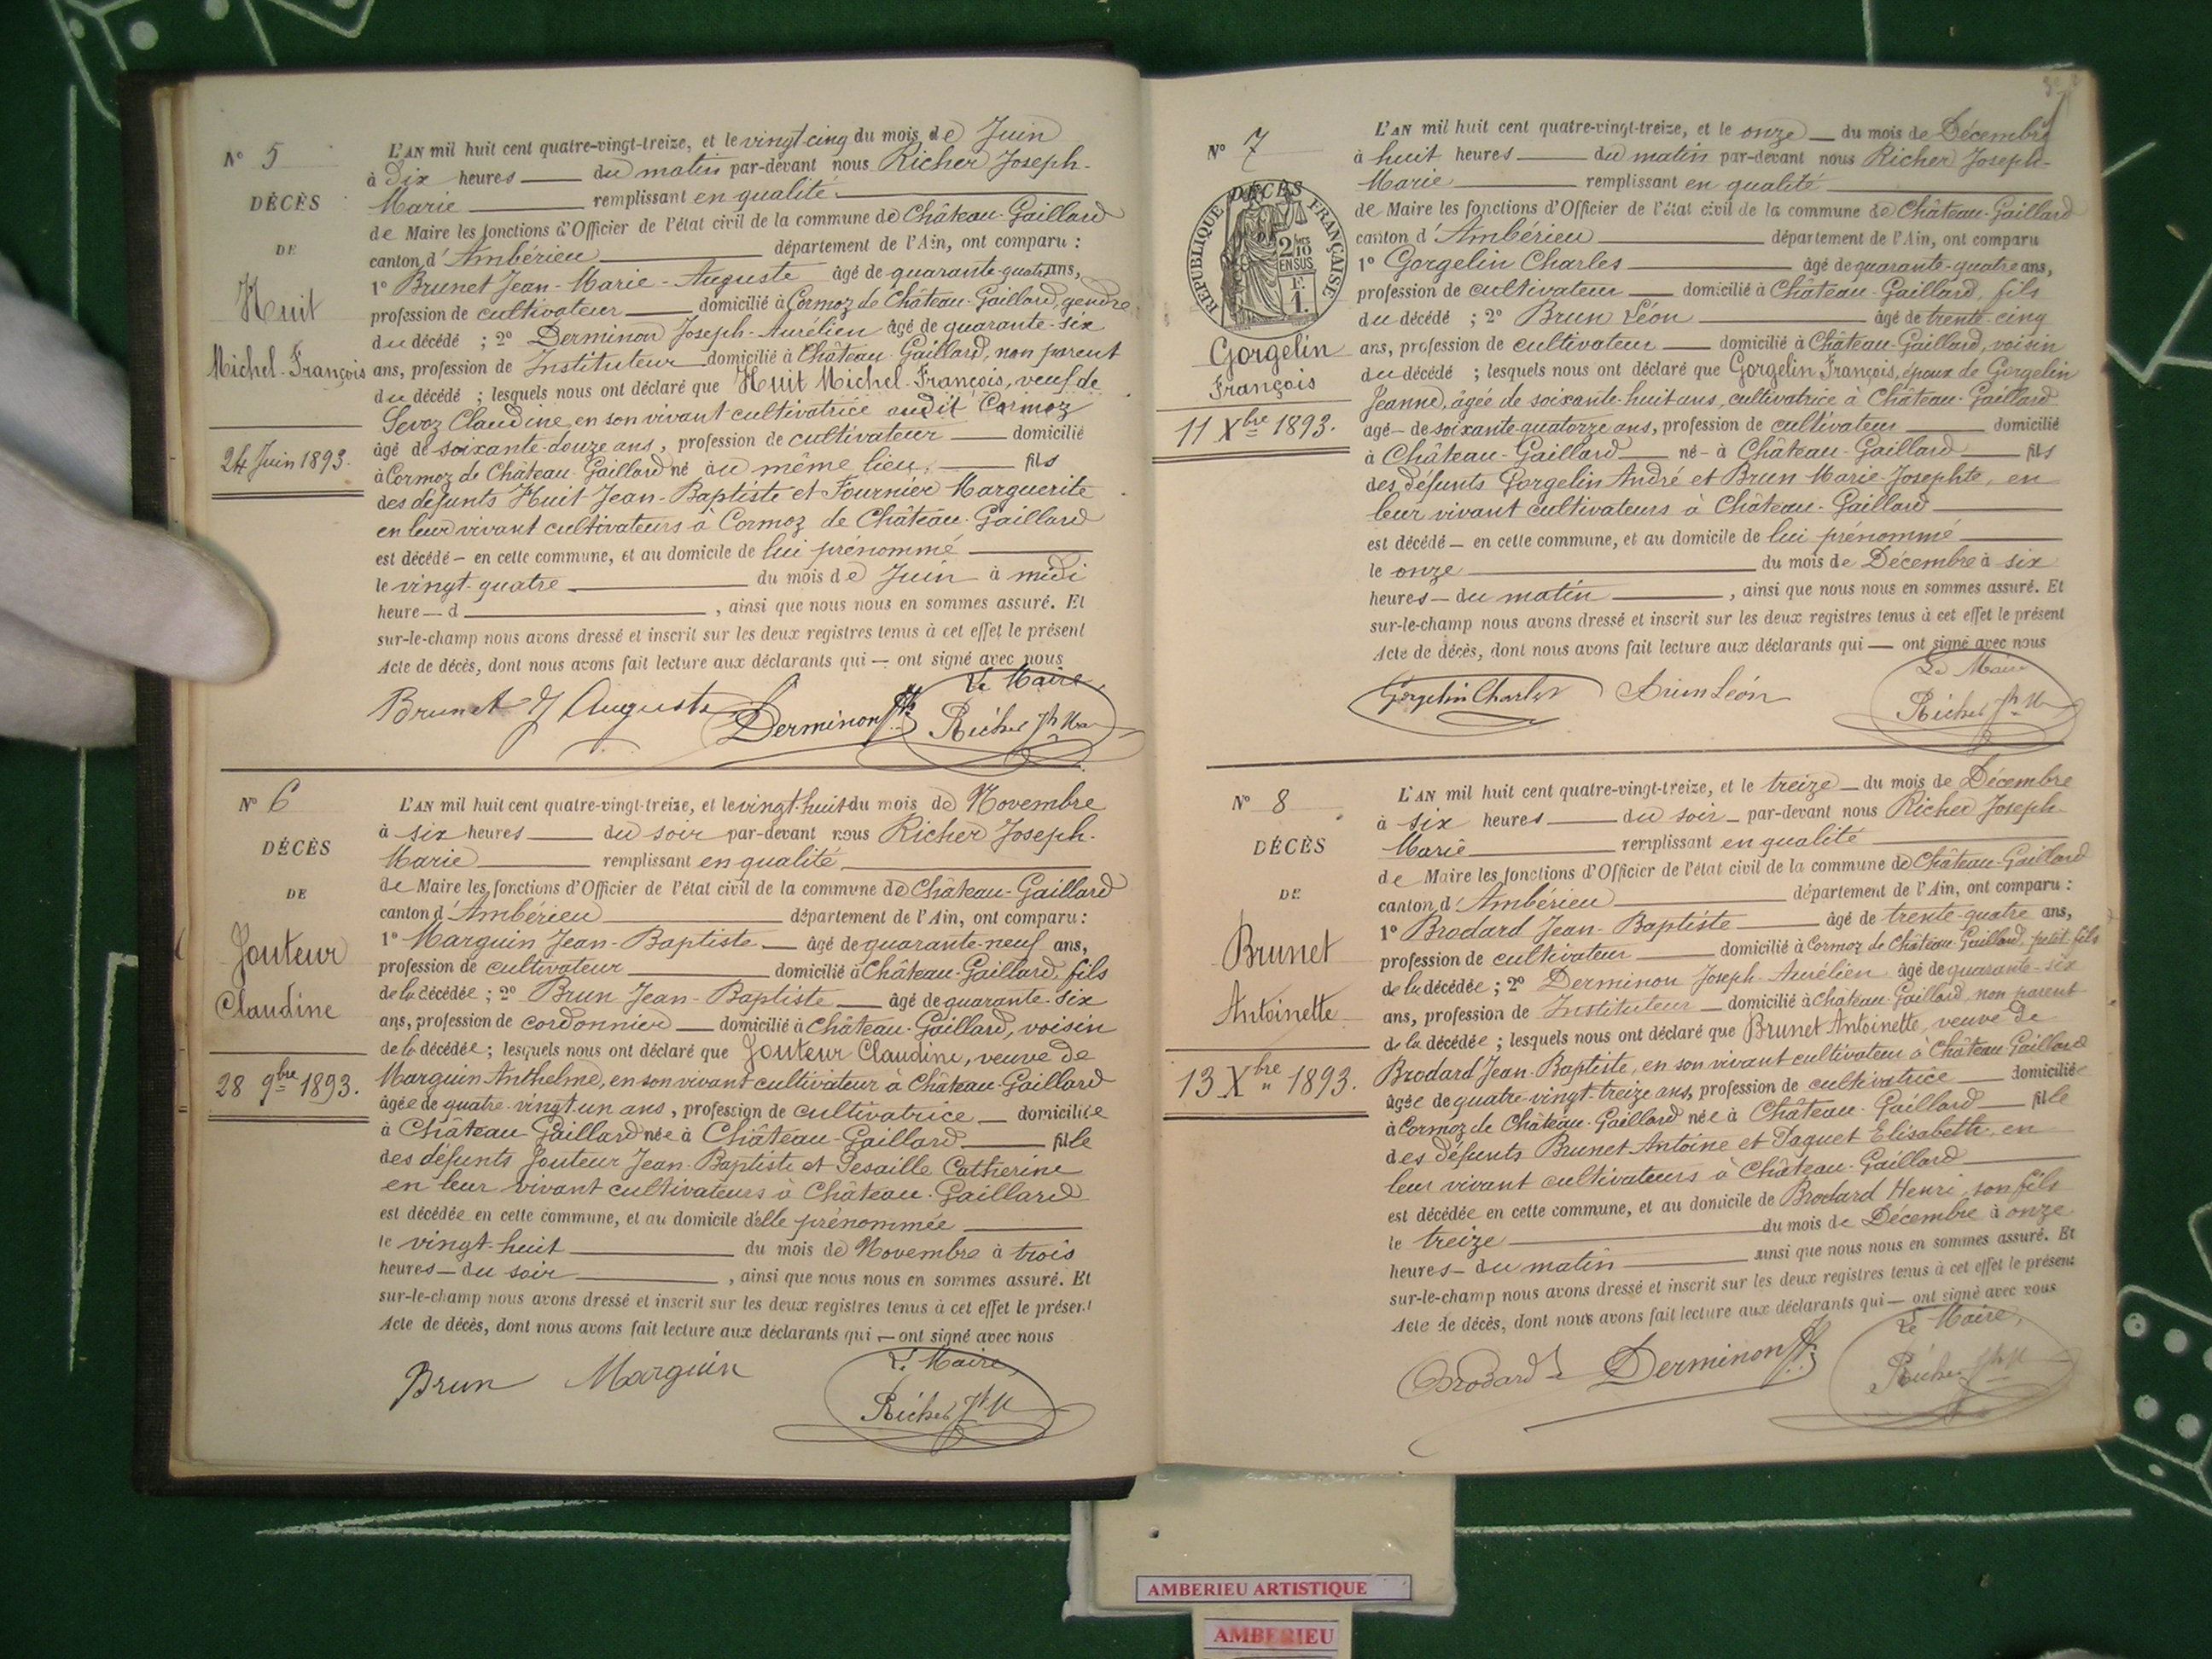 N° 5
DÉCÈS
DE
Huit
Michel-François
24 Juin 1893.
L'AN mil huit cent quatre-vingt-treize, et le vingt-cinq du mois de Juin
à dix heures du matin par-devant nous Richer Joseph-
Marie remplissant en qualité
de Maire les fonctions d'Officier de l'état civil de la commune de Château-Gaillard
canton d'Ambérieu département de l'Ain, ont comparu :
1° Brunet Jean-Marie-Auguste âgé de quarante-quatre ans,
profession de cultivateur domicilié à Cormoz de Château-Gaillard, gendre
du décédé ; 2° Derminon Joseph-Aurélien âgé de quarante-six
ans, profession de Instituteur domicilié à Château-Gaillard, non parent
du décédé ; lesquels nous ont déclaré que Huit Michel-François, veuf de
Sevoz Claudine, en son vivant cultivatrice audit Cormoz
âgé de soixante-douze ans, profession de cultivateur domicilié
à Cormoz de Château-Gaillard né au même lieu, fils
des défunts Huit Jean-Baptiste et Fournier Marguerite
en leur vivant cultivateurs à Cormoz de Château-Gaillard
est décédé – en cette commune, et au domicile de lui prénommé
le vingt-quatre du mois de Juin à midi
heure — d , ainsi que nous nous en sommes assuré. Et
sur-le-champ nous avons dressé et inscrit sur les deux registres tenus à cet effet le présent
Acte de décès, dont nous avons fait lecture aux déclarants qui — ont signé avec nous
Le Maire,
Brunet J Auguste Derminon Jh Richer Jh Ma
N° 6
DÉCÈS
DE
Jouteur
Claudine
28 9bre 1893.
L'AN mil huit cent quatre-vingt-treize, et le vingt-huit du mois de Novembre
à six heures du soir par-devant nous Richer Joseph-
Marie remplissant en qualité
de Maire les fonctions d'Officier de l'état civil de la commune de Château-Gaillard
canton d'Ambérieu département de l'Ain, ont comparu :
1° Marguin Jean-Baptiste âgé de quarante-neuf ans,
profession de cultivateur domicilié à Château-Gaillard, fils
de la décédée ; 2° Brun Jean-Baptiste âgé de quarante-six
ans, profession de cordonnier domicilié à Château-Gaillard, voisin
de la décédée ; lesquels nous ont déclaré que Jouteur Claudine, veuve de
Marguin Anthelme, en son vivant cultivateur à Château-Gaillard
âgée de quatre-vingt-un ans, profession de cultivatrice domiciliée
à Château-Gaillard née à Château-Gaillard fille
des défunts Jouteur Jean-Baptiste et Pesaille Catherine
en leur vivant cultivateurs à Château-Gaillard
est décédée en cette commune, et au domicile d'elle prénommée
le vingt-huit du mois de Novembre à trois
heures — du soir , ainsi que nous nous en sommes assuré. Et
sur-le-champ nous avons dressé et inscrit sur les deux registres tenus à cet effet le présent
Acte de décès, dont nous avons fait lecture aux déclarants qui — ont signé avec nous
Le Maire,
Brun Marguin Richer Jh M
N° 7
DÉCÈS
RÉPUBLIQUE FRANÇAISE
2/10 EN SUS
F. 1.
Gorgelin
François
11 Xbre 1893.
L'AN mil huit cent quatre-vingt-treize, et le onze du mois de Décembre
à huit heures du matin par-devant nous Richer Joseph-
Marie remplissant en qualité
de Maire les fonctions d'Officier de l'état civil de la commune de Château-Gaillard
canton d'Ambérieu département de l'Ain, ont comparu
1° Gorgelin Charles âgé de quarante-quatre ans,
profession de cultivateur domicilié à Château-Gaillard, fils
du décédé ; 2° Brun Léon âgé de trente-cinq
ans, profession de cultivateur domicilié à Château-Gaillard, voisin
du décédé ; lesquels nous ont déclaré que Gorgelin François, époux de Gorgelin
Jeanne, âgée de soixante-huit ans, cultivatrice à Château-Gaillard
âgé – de soixante-quatorze ans, profession de cultivateur domicilié
à Château-Gaillard né – à Château-Gaillard fils
des défunts Gorgelin André et Brun Marie-Josephte, en
leur vivant cultivateurs à Château-Gaillard
est décédé – en cette commune, et au domicile de lui prénommé
le onze du mois de Décembre à six
heures – du matin , ainsi que nous nous en sommes assuré. Et
sur-le-champ nous avons dressé et inscrit sur les deux registres tenus à cet effet le présent
Acte de décès, dont nous avons fait lecture aux déclarants qui — ont signé avec nous
Le Maire
Gorgelin Charles Brun Léon Richer Jh M
N° 8
DÉCÈS
DE
Brunet
Antoinette
13 Xbre 1893.
L'AN mil huit cent quatre-vingt-treize, et le treize du mois de Décembre
à six heures du soir – par-devant nous Richer Joseph-
Marie remplissant en qualité
de Maire les fonctions d'Officier de l'état civil de la commune de Château-Gaillard
canton d'Ambérieu département de l'Ain, ont comparu :
1° Brodard Jean-Baptiste âgé de trente-quatre ans,
profession de cultivateur domicilié à Cormoz de Château-Gaillard, petit-fils
de la décédée ; 2° Derminon Joseph-Aurélien âgé de quarante-six
ans, profession de Instituteur domicilié à Château-Gaillard, non parent
de la décédée ; lesquels nous ont déclaré que Brunet Antoinette, veuve de
Brodard Jean-Baptiste, en son vivant cultivateur à Château-Gaillard
âgée de quatre-vingt-treize ans, profession de cultivatrice domiciliée
à Cormoz de Château-Gaillard née à Château-Gaillard fille
des défunts Brunet Antoine et Paquet Elisabeth, en
leur vivant cultivateurs à Château-Gaillard
est décédée en cette commune, et au domicile de Brodard Henri, son fils
le treize du mois de Décembre à onze
heures – du matin ainsi que nous nous en sommes assuré. Et
sur-le-champ nous avons dressé et inscrit sur les deux registres tenus à cet effet le présent
Acte de décès, dont nous avons fait lecture aux déclarants qui — ont signé avec nous
Le Maire,
Brodard Derminon Jh Richer Jh M
AMBERIEU ARTISTIQUE
AMBERIEU